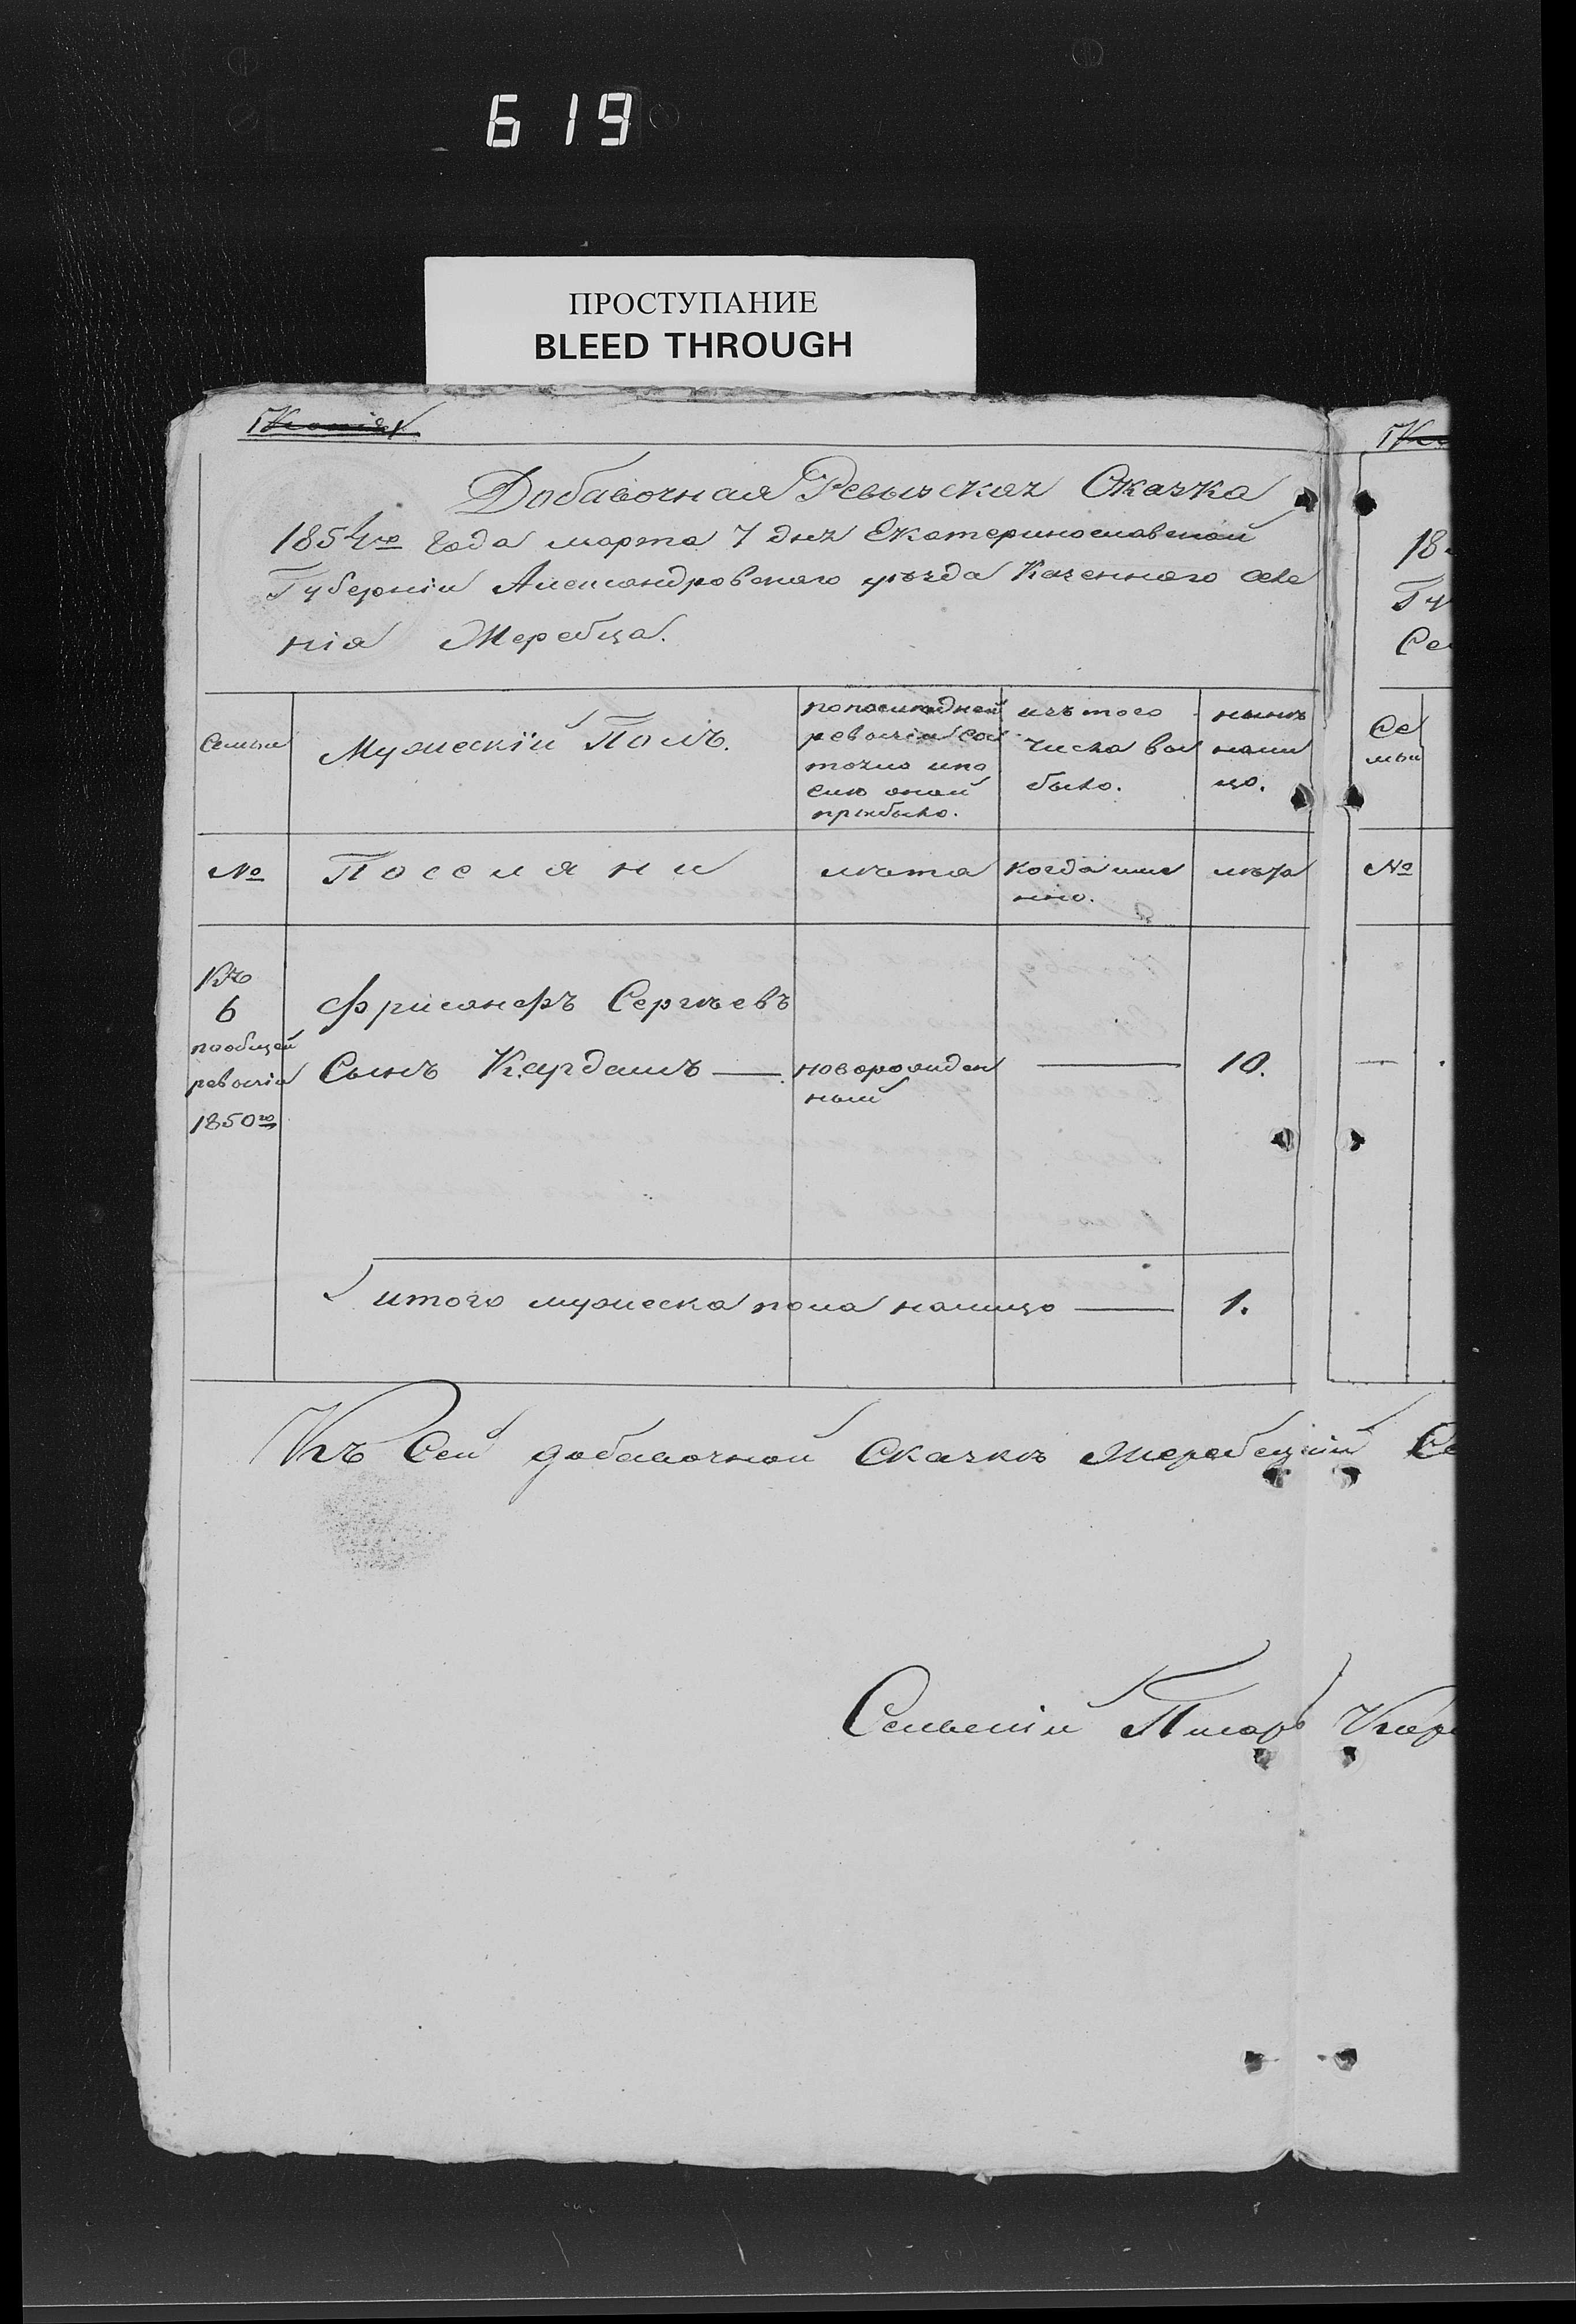 619
ПРОСТУПАНИЕ
BLEED THROUGH
Копія
Добавочная Ревызская Сказка
1854го Года марта 7 дня Екатеринославской
Губерніи Александровского уѣзда Казенного селе
нія Жеребца.
18
Гу
Се
Семьи
Мужескій Полъ.
попоследней ревызіи состояло ипосле оной прибыло.
изъ того числа выбыло.
нынѣ налицо.
Се
мьи
№ Поселяни лѣта когда имянно. лѣта №
Къ
6
пообщей
ревызіи
1850го
Фрисанфъ Сергѣевъ
Сынъ Кардашъ — новорожден
ный — 10.
итого мужеска пола налицо — 1.
Къ Сей добавочной Сказкѣ Жеребецкий Се
Сельский Писарь